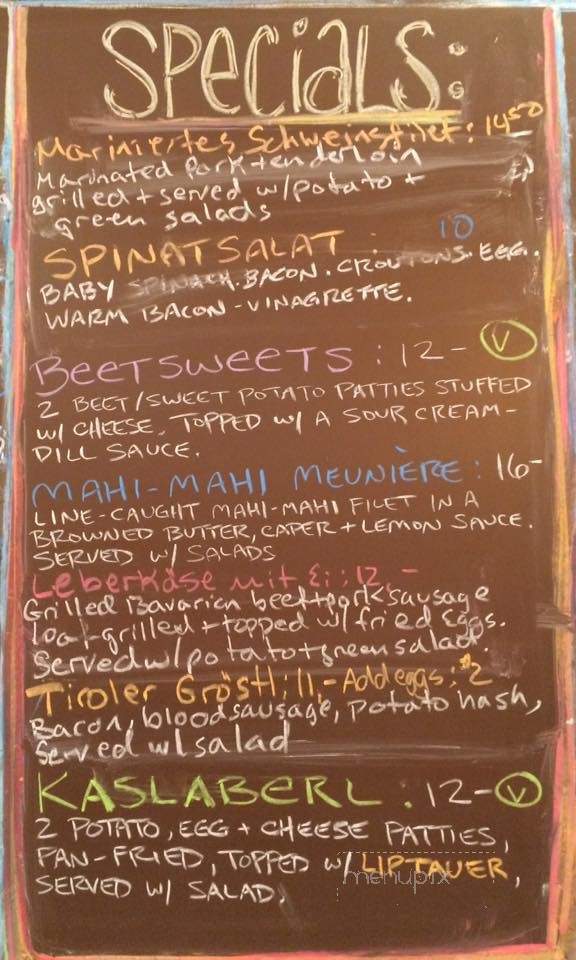 SPECIALS:
Mariniertes Schweinsfilet: 14.50
Marinated Pork tenderloin
grilled + served w/potato +
green salads
SPINATSALAT : 10
BABY SPINACH. BACON. CROUTONS. EGG..
WARM BACON-VINAGRETTE.
BEETSWEETS : 12- V
2 BEET/SWEET POTATO PATTIES STUFFED
W/ CHEESE, TOPPED W/ A SOUR CREAM-
DILL SAUCE.
MAHI-MAHI MEUNIÈRE: 16-
LINE-CAUGHT MAHI-MAHI FILET IN A
BROWNED BUTTER, CAPER + LEMON SAUCE.
SERVED W/ SALADS
Leberkäse mit Ei: 12,-
Grilled Bavarian beef+pork sausage
loaf grilled + topped w/ fried Eggs.
Served w/ potato+green salad.
Tiroler Gröstl: 11,- Add eggs: $2
Bacon, blood sausage, potato hash,
Served w/ salad
KASLABERL : 12- V
2 POTATO, EGG + CHEESE PATTIES,
PAN-FRIED, TOPPED W/ LIPTAUER,
SERVED W/ SALAD.
menupix